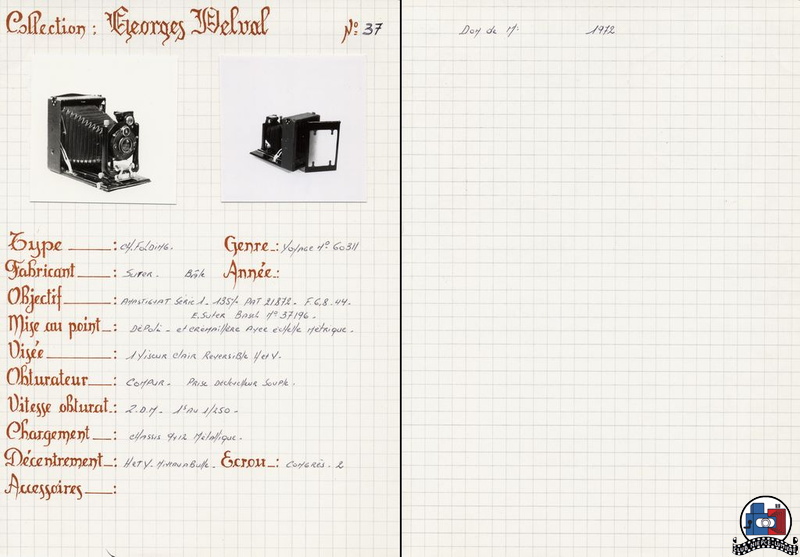 Collection : Georges Delval Nº 37
Type : CH. FOLDING. Genre : Voyage Nº 60311
Fabricant : SUTER. Bâle Année :
Objectif : ANASTIGMAT SÉRIE 1 - 135% PAT 21872 - F. 6,8 - 44.
E. SUTER Basel Nº 37196.
Mise au point : DÉPOLI - et CRÉMAILLÈRE Avec échelle Métrique.
Visée : 1 Viseur clair Réversible H et V.
Obturateur : COMPUR - Prise Déclencheur Souple.
Vitesse obturat. : Z.D.M. - 1s Au 1/250 -
Chargement : châssis 9x12 Métallique.
Décentrement : H et V. Niveau à Bulle. Ecrou : CONGRÈS. 2
Accessoires :
Don de Mr 1972